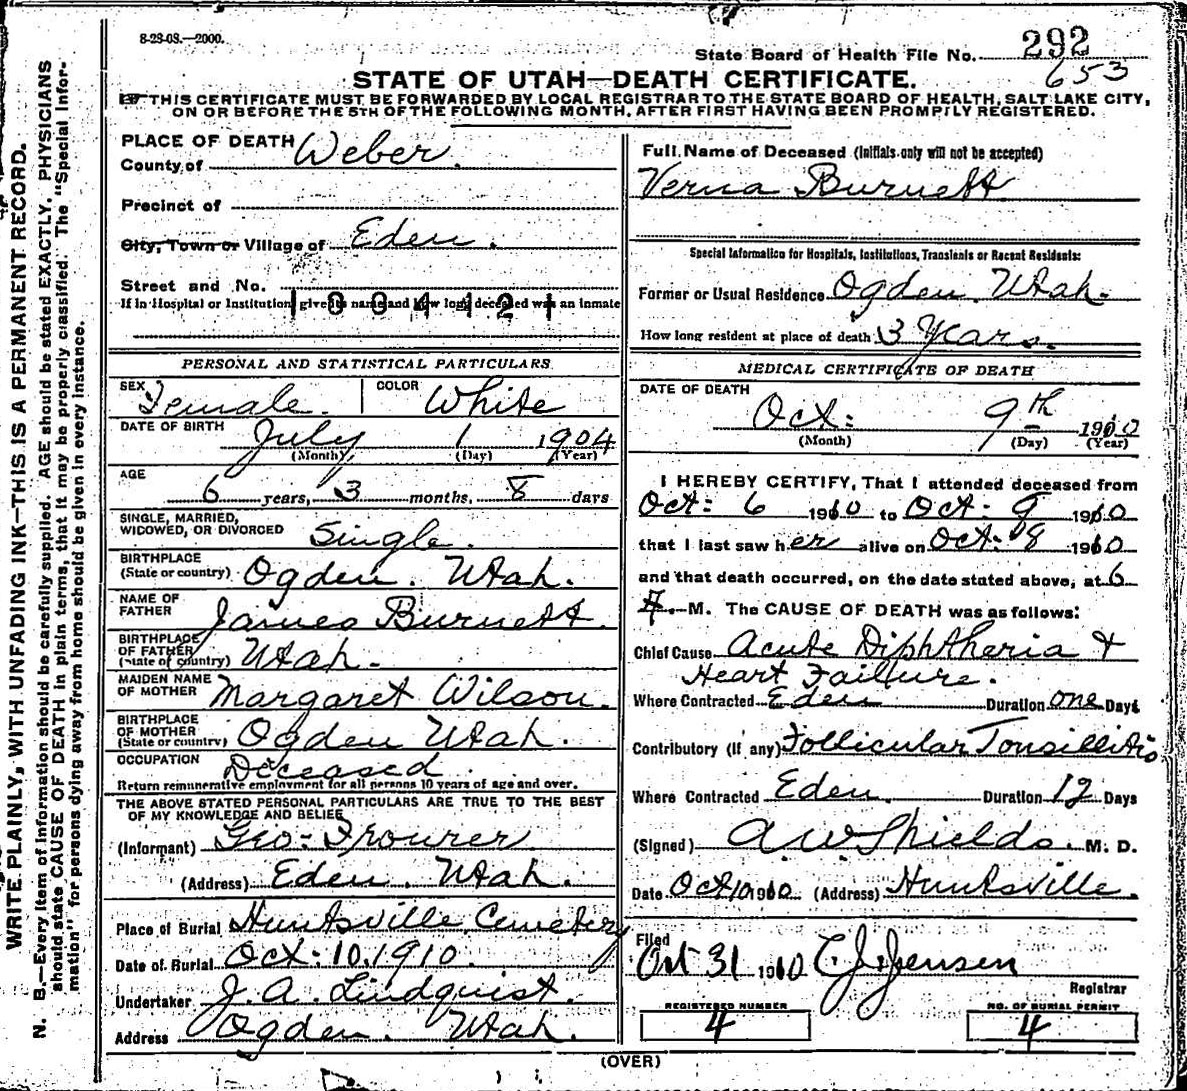 8-23-08.—2000.
State Board of Health File No. 292
653
STATE OF UTAH—DEATH CERTIFICATE.
THIS CERTIFICATE MUST BE FORWARDED BY LOCAL REGISTRAR TO THE STATE BOARD OF HEALTH, SALT LAKE CITY,
ON OR BEFORE THE 5TH OF THE FOLLOWING MONTH, AFTER FIRST HAVING BEEN PROMPTLY REGISTERED.
WRITE PLAINLY, WITH UNFADING INK—THIS IS A PERMANENT RECORD.
N. B.—Every item of information should be carefully supplied. AGE should be stated EXACTLY. PHYSICIANS
should state CAUSE OF DEATH in plain terms, that it may be properly classified. The "Special Infor-
mation" for persons dying away from home should be given in every instance.
PLACE OF DEATH
County of Weber.
Precinct of
City, Town or Village of Eden.
Street and No.
If in Hospital or Institution, give its name and how long deceased was an inmate
1004121
PERSONAL AND STATISTICAL PARTICULARS
SEX Female. COLOR White
DATE OF BIRTH July 1 1904
(Month) (Day) (Year)
AGE 6 years, 3 months, 8 days
SINGLE, MARRIED,
WIDOWED, OR DIVORCED Single.
BIRTHPLACE
(State or country) Ogden. Utah.
NAME OF
FATHER James Burnett.
BIRTHPLACE
OF FATHER
(State or country) Utah.
MAIDEN NAME
OF MOTHER Margaret Wilson.
BIRTHPLACE
OF MOTHER
(State or country) Ogden Utah.
OCCUPATION Deceased
Return remunerative employment for all persons 10 years of age and over.
THE ABOVE STATED PERSONAL PARTICULARS ARE TRUE TO THE BEST
OF MY KNOWLEDGE AND BELIEF
(Informant) Geo. Frourer
(Address) Eden. Utah.
Place of Burial Huntsville Cemetery
Date of Burial Oct. 10, 1910.
Undertaker J. A. Lindquist.
Address Ogden. Utah.
Full Name of Deceased (Initials only will not be accepted)
Verna Burnett
Special Information for Hospitals, Institutions, Transients or Recent Residents:
Former or Usual Residence Ogden. Utah.
How long resident at place of death 3 Years.
MEDICAL CERTIFICATE OF DEATH
DATE OF DEATH
Oct: 9th 1910
(Month) (Day) (Year)
I HEREBY CERTIFY, That I attended deceased from
Oct: 6 1910 to Oct: 9 1910
that I last saw her alive on Oct: 8 1910
and that death occurred, on the date stated above, at 6
M. The CAUSE OF DEATH was as follows:
Chief Cause Acute Diphtheria &
Heart Failure.
Where Contracted Eden Duration one Days
Contributory (If any) Follicular Tonsillitis
Where Contracted Eden. Duration 12 Days
(Signed) A W Shields. M. D.
Date Oct 10 1910 (Address) Huntsville.
Filed
Oct 31 1910 C. J. Jensen
Registrar
REGISTERED NUMBER
4
NO. OF BURIAL PERMIT
4
(OVER)